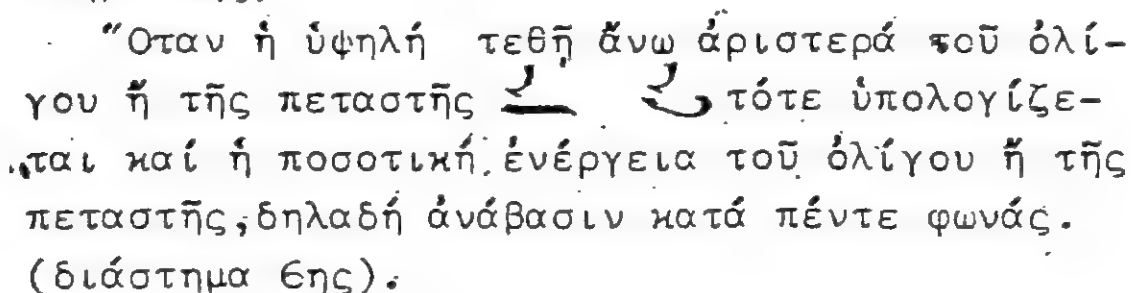 "Οταν ἡ ὑψηλή τεθῇ ἄνω ἀριστερά τοῦ ὀλί-
γου ἤ τῆς πεταστῆς τότε ὑπολογίζε-
ται καί ἡ ποσοτική ἐνέργεια τοῦ ὀλίγου ἤ τῆς
πεταστῆς, δηλαδή ἀνάβασιν κατά πέντε φωνάς.
(διάστημα 6ης).